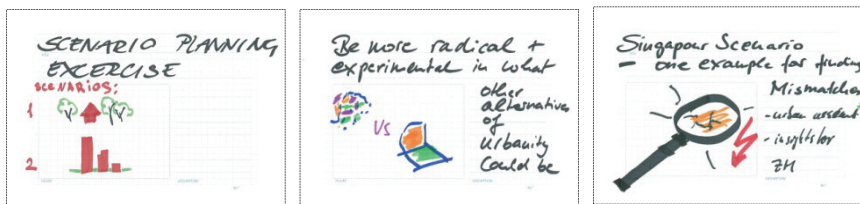 SCENARIO PLANNING
EXCERCISE
SCENARIOS:
1
2
Be more radical +
experimental in what
other
alternatives
of
Urbanity
could be
VS
Singapour Scenario
– one example for finding
Mismatches
- urban
- insights for
ZH